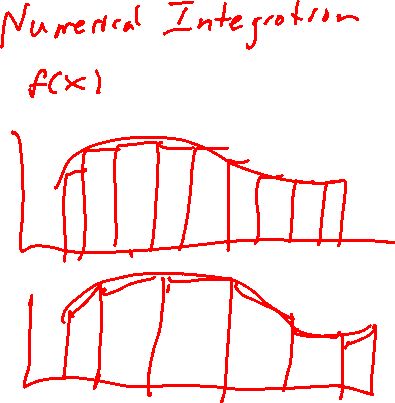 Numerical Integration
f(x)